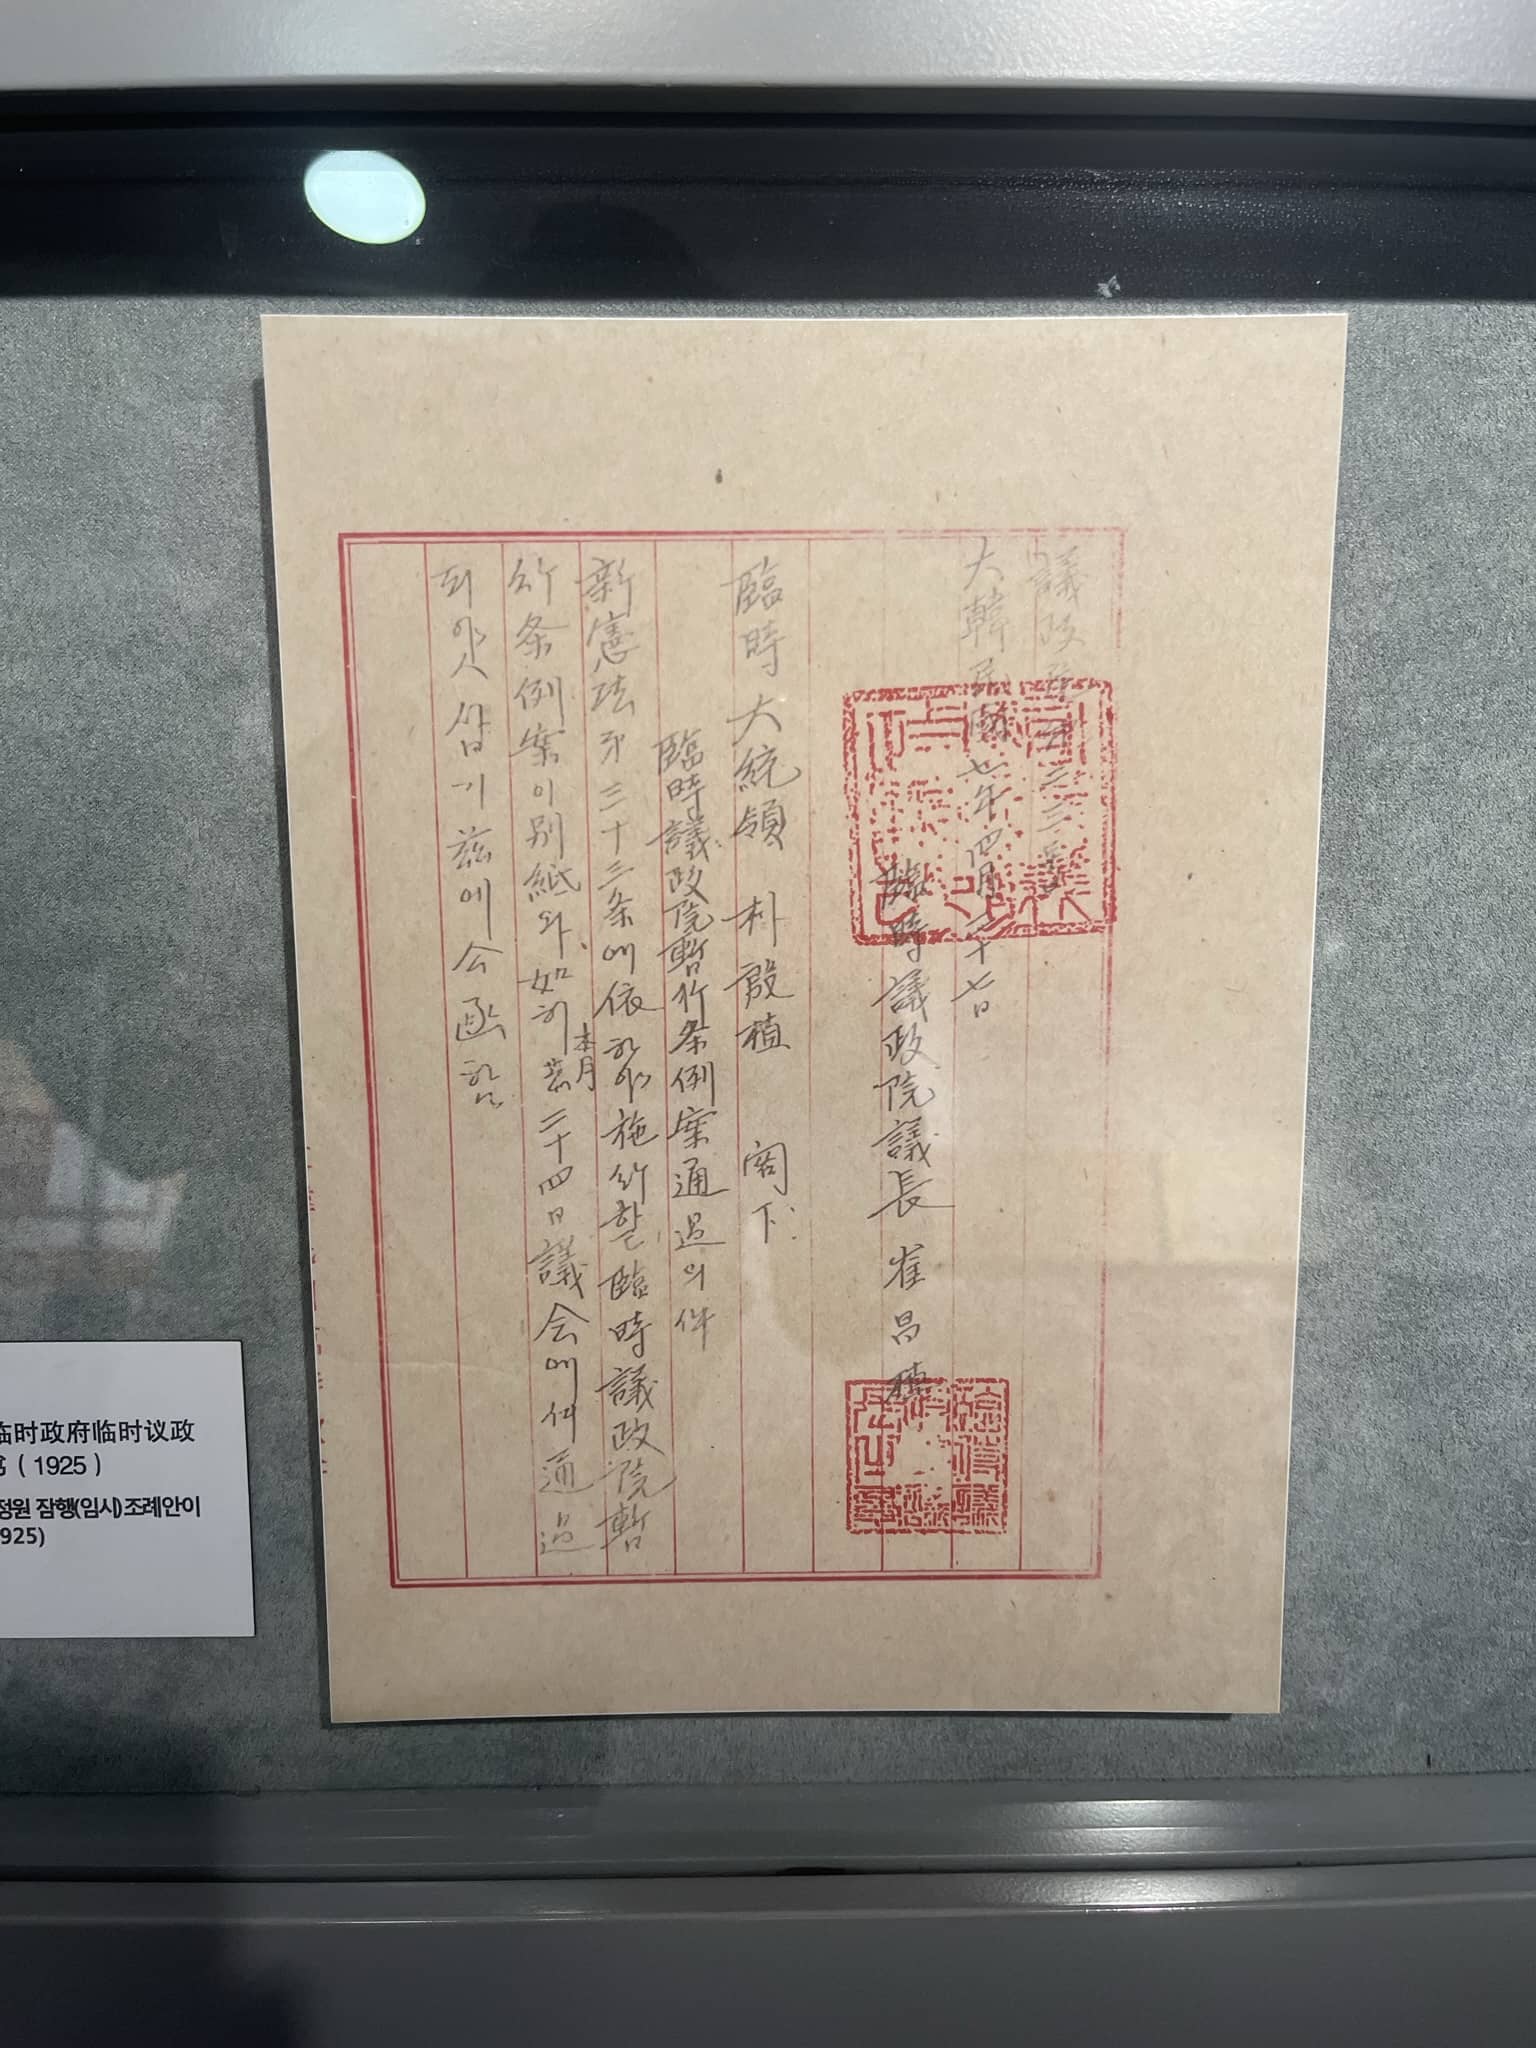 議政院
大韓民國七年四月二十七日
臨時議政院議長 崔昌植
臨時大統領 朴殷植 閣下
臨時議政院暫行条例案通過의件
新憲法第三十三条에依하야施行할臨時議政院暫
行条例案이別紙와如히本月二十四日議会에서通過
되얏삽기玆에公函함
临时政府临时议政
（1925）
정원 잠행(임시)조례안이
925)